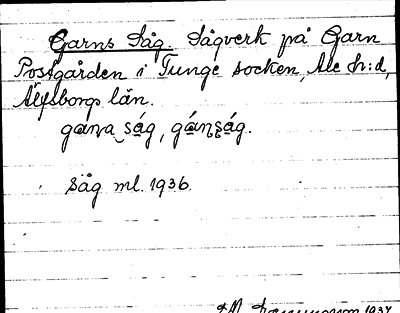 Garns Såg. Sågverk på Garn
Postgården i Tunge socken, Ale h:d,
Älfsborgs län.
gaṇa ság, gáṇṣág.
Såg ml. 1936.
1937